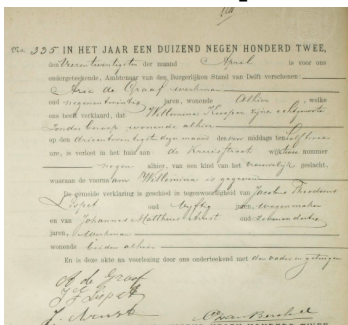 No. 335 IN HET JAAR EEN DUIZEND NEGEN HONDERD TWEE,
den Vierentwintigsten der maand April is voor ons
ondergeteekende, Ambtenaar van den Burgerlijken Stand van Delft verschenen:
Arie de Graaf werkman
oud negenentwintig jaren, wonende Alhier, welke
ons heeft verklaard, dat Willemina Knuper zijne echtgenoote
zonder beroep wonende alhier
op den middags te half twee
ure, is verlost in het huis aan de Kruisstraat wijk nummer
negen alhier, van een kind van het vrouwelijk geslacht,
waaraan de voornaam Willemina is gegeven
De gemelde verklaring is geschied in tegenwoordigheid van Jacobus Theodorus
Lispet oud vijftig jaren, wagenmaker
en van Johannes Mattheus oud
jaren, werkman
wonende beiden alhier
En is deze akte na voorlezing door ons onderteekend met den vader en getuigen
A de Graaf
J T Lispet
J.